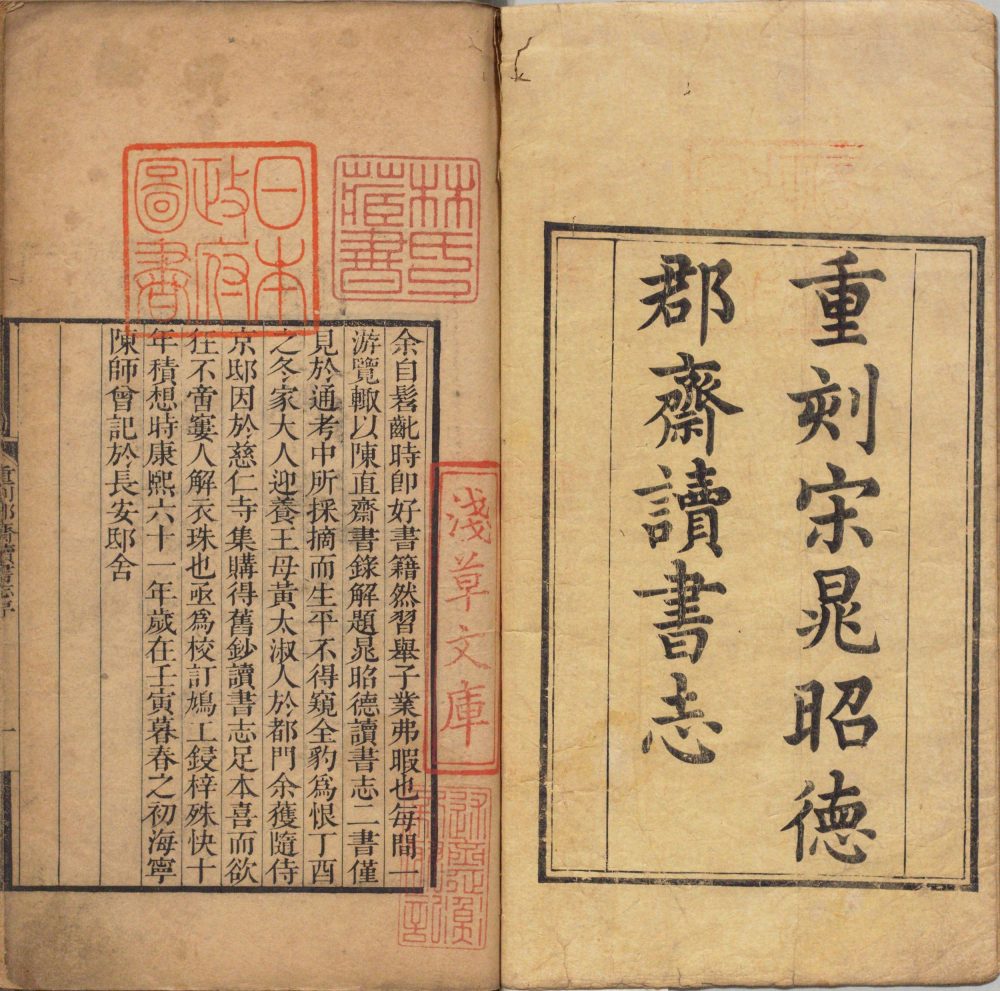 重刻宋晁昭德
郡齋讀書志
日本
政府
圖書
林氏
藏書
淺草文庫
余自髫齔時即好書籍然習舉子業弗暇也每間一
游覽輙以陳直齋書錄解題晁昭德讀書志二書僅
見於通考中所採摘而生平不得窺全豹爲恨丁酉
之冬家大人迎養王母黃太淑人於都門余獲隨侍
京邸因於慈仁寺集購得舊鈔讀書志足本喜而欲
狂不啻窶人解衣珠也亟爲校訂鳩工鋟梓殊快十
年積想時康熙六十一年歲在壬寅暮春之初海寧
陳師曾記於長安邸舍
重刻郡齋讀書志序
一